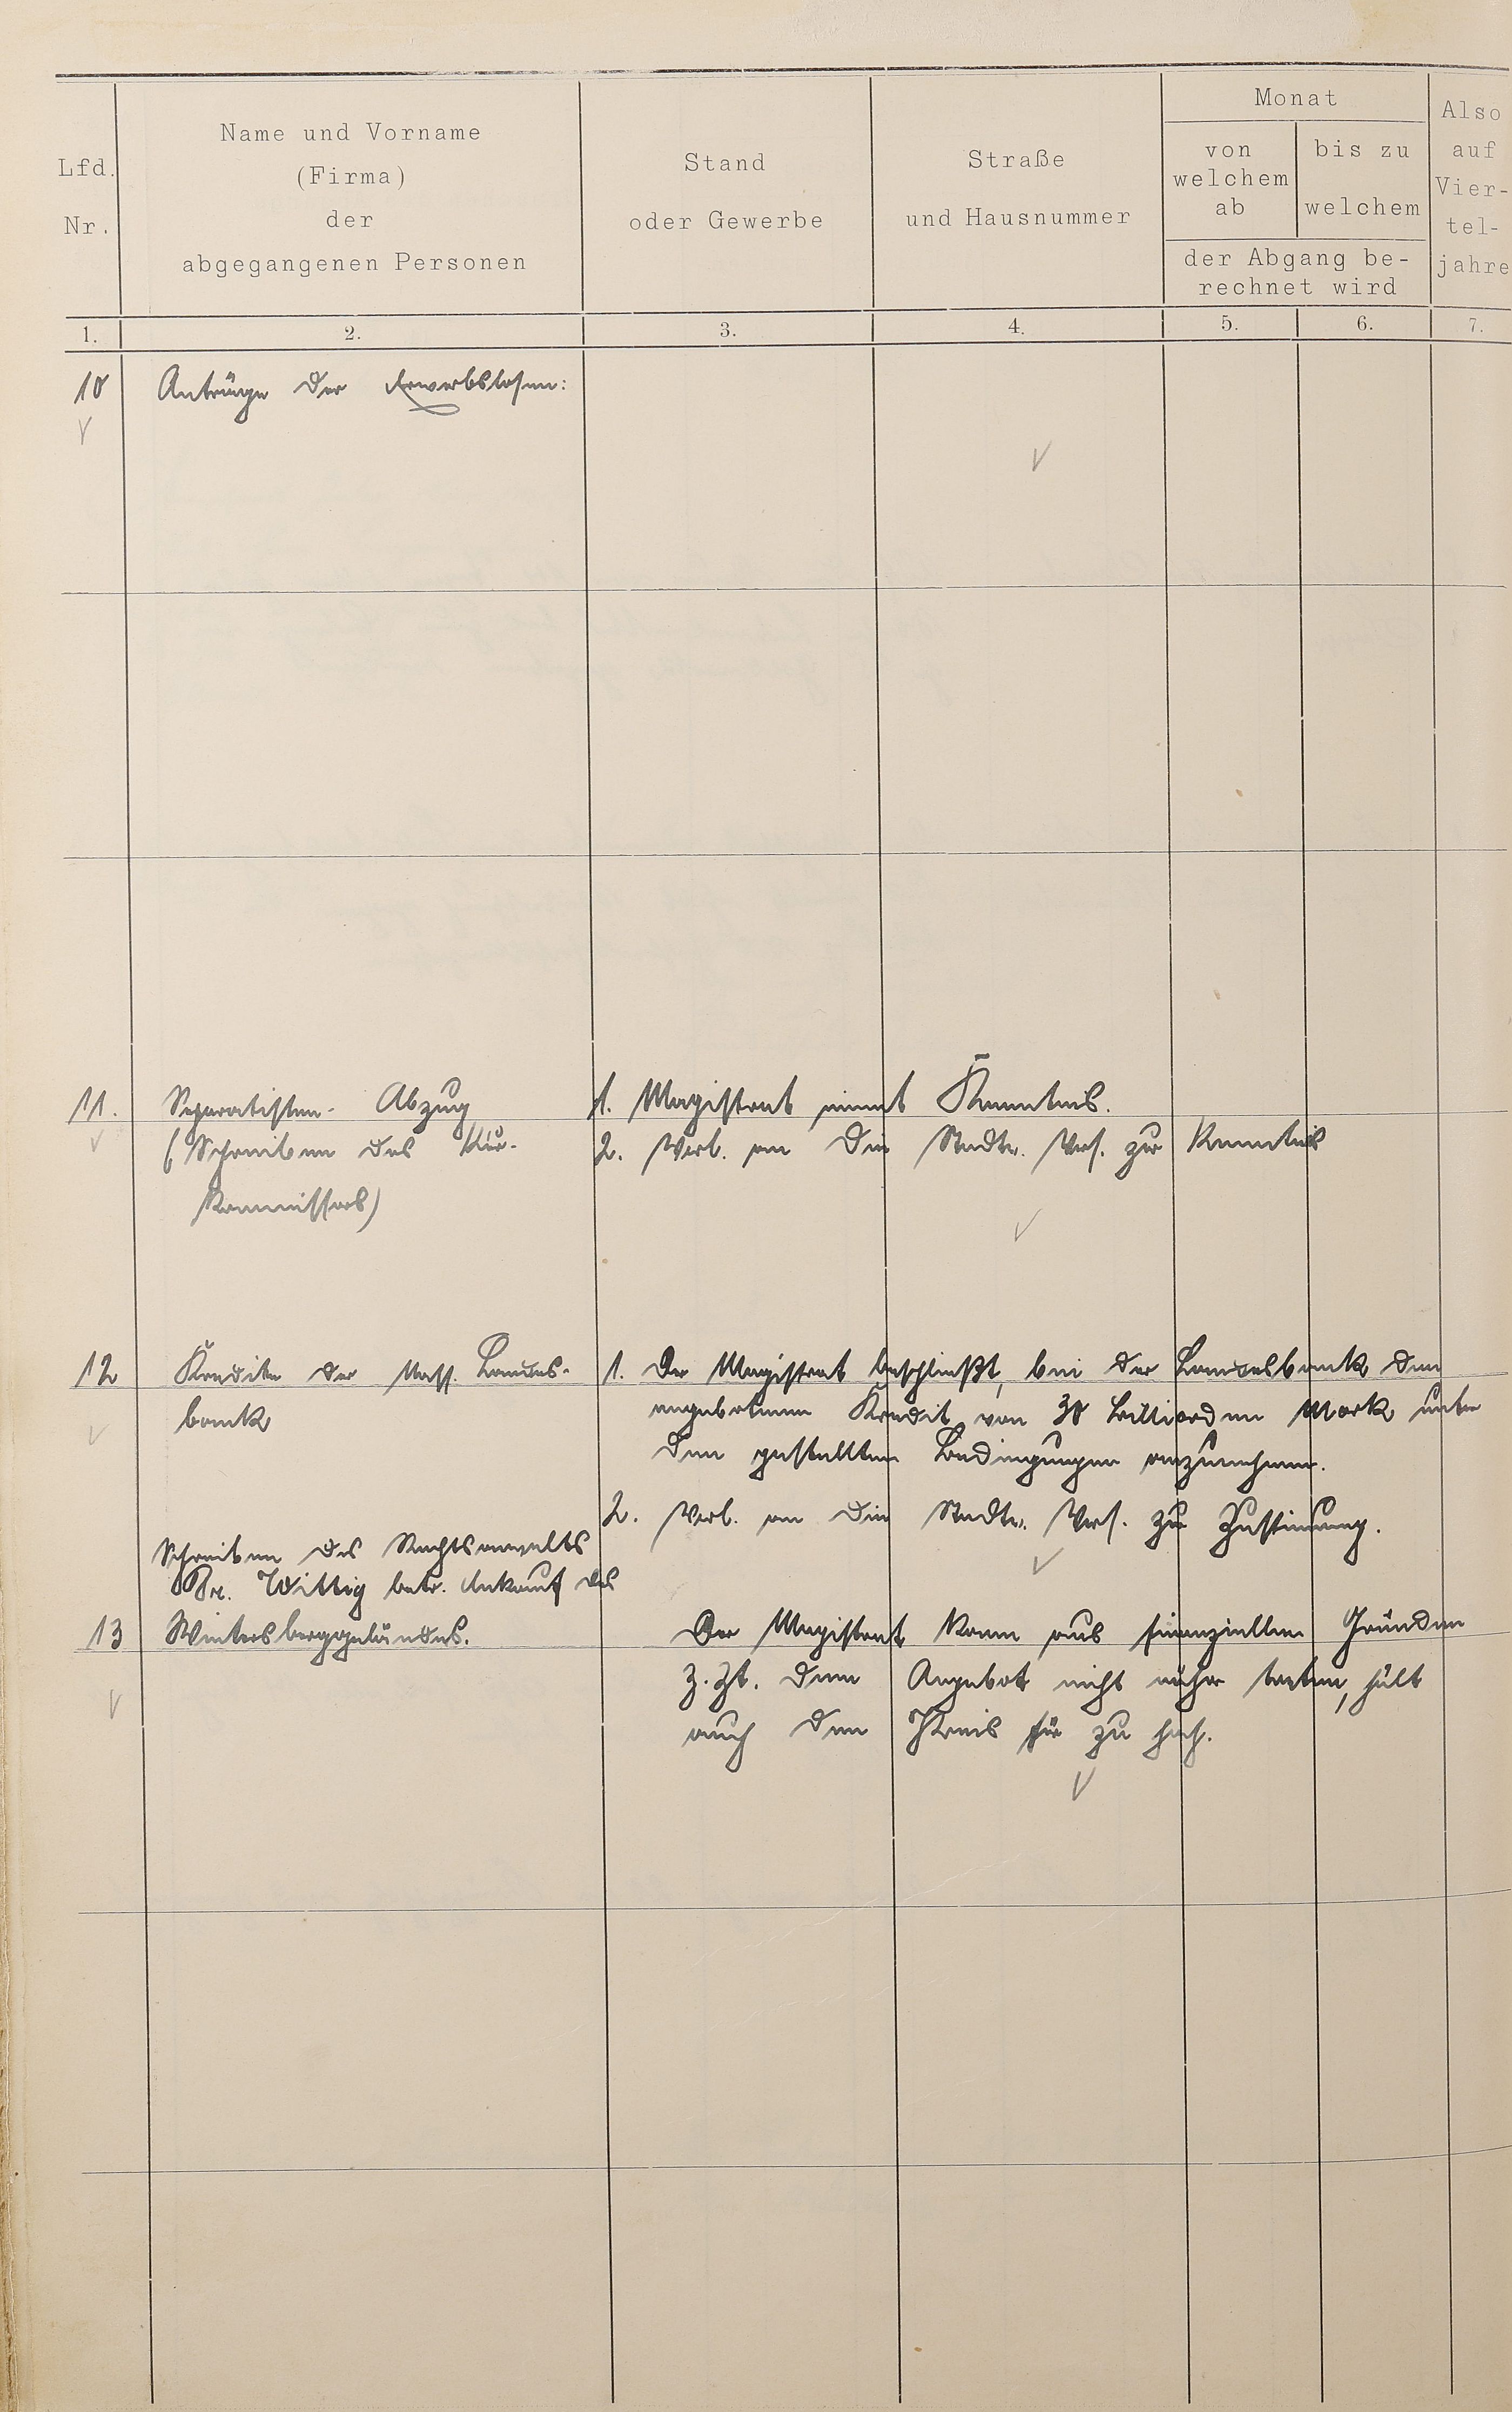 Lfd. Nr.
Name und Vorname
(Firma)
der
abgegangenen Personen
Stand
oder Gewerbe
Straße
und Hausnummer
Monat
von welchem ab
bis zu welchem
der Abgang be-
rechnet wird
Also auf Vier-tel-jahre
1. 2. 3. 4. 5. 6. 7.
10 Anträge der Erwerbslosen:
11. Separatisten-Abzug
(Schreiben des Kur-
kommissars)
1. Magistrat nimmt Kenntnis.
2. Vorl. an die Stadtv. Vers. zur Kenntnis
12 Kredite der Nass. Landes-
bank
1. Der Magistrat beschließt, bei der Landesbank den
angebotenen Kredit von 30 Billiarden Mark unter
den gestellten Bedingungen anzunehmen.
2. Vorl. an die Stadtv. Vers. zur Zustimmung.
Schreiben des Rechtsanwalts
Dr. Wittig betr. Ankauf des
13 Wintersberggeländes.
Der Magistrat kann aus finanziellen Gründen
z. Zt. dem Angebot nicht näher treten, hält
auch den Preis für zu hoch.